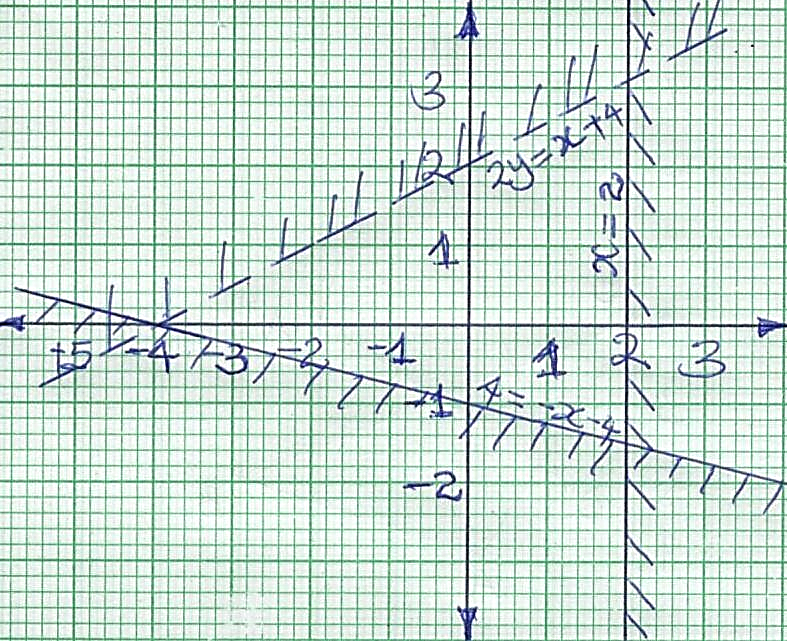 3
2
2y=x+4
x=2
1
-5 -4 -3 -2 -1 1 2 3
-1
4=-x-4
-2